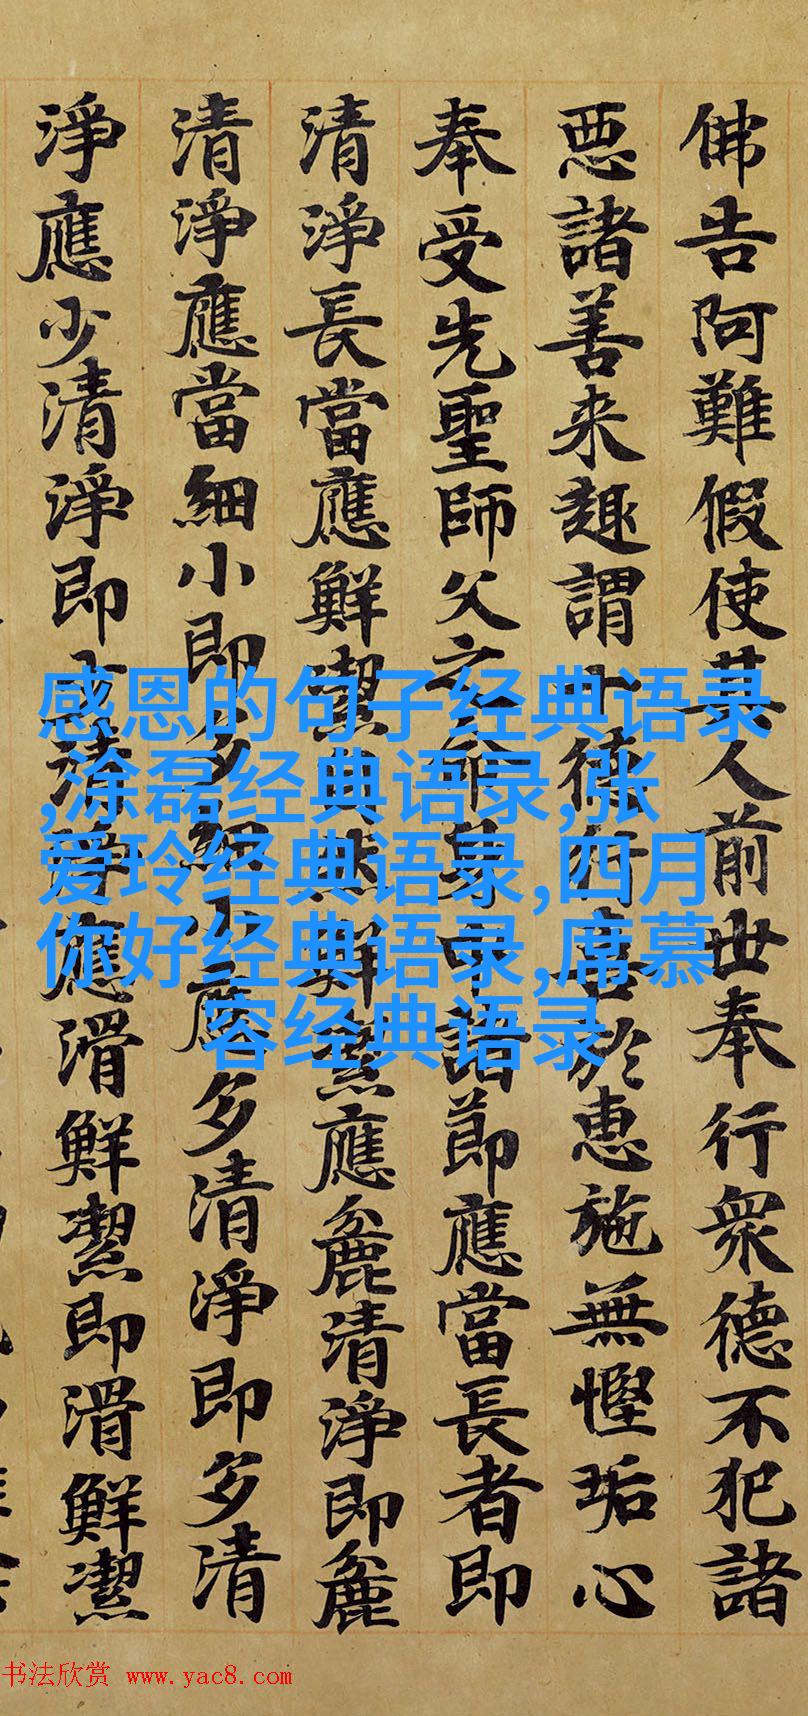 佛告阿難假使某人前世奉行衆德不犯諸
惡諸善来趣謂十德行喜於惠施無慳垢心
奉受先聖師父之命身中諸節應當長者即
清淨長當應鮮潔然鮮潔應麁清淨即麁
清淨應當細小即細小應多清淨即多清
淨應少清淨即清淨應滑鮮潔即滑鮮潔
感恩的句子经典语录
,涂磊经典语录,张
爱玲经典语录,四月
你好经典语录,席慕
容经典语录
书法欣赏 www.yac8.com